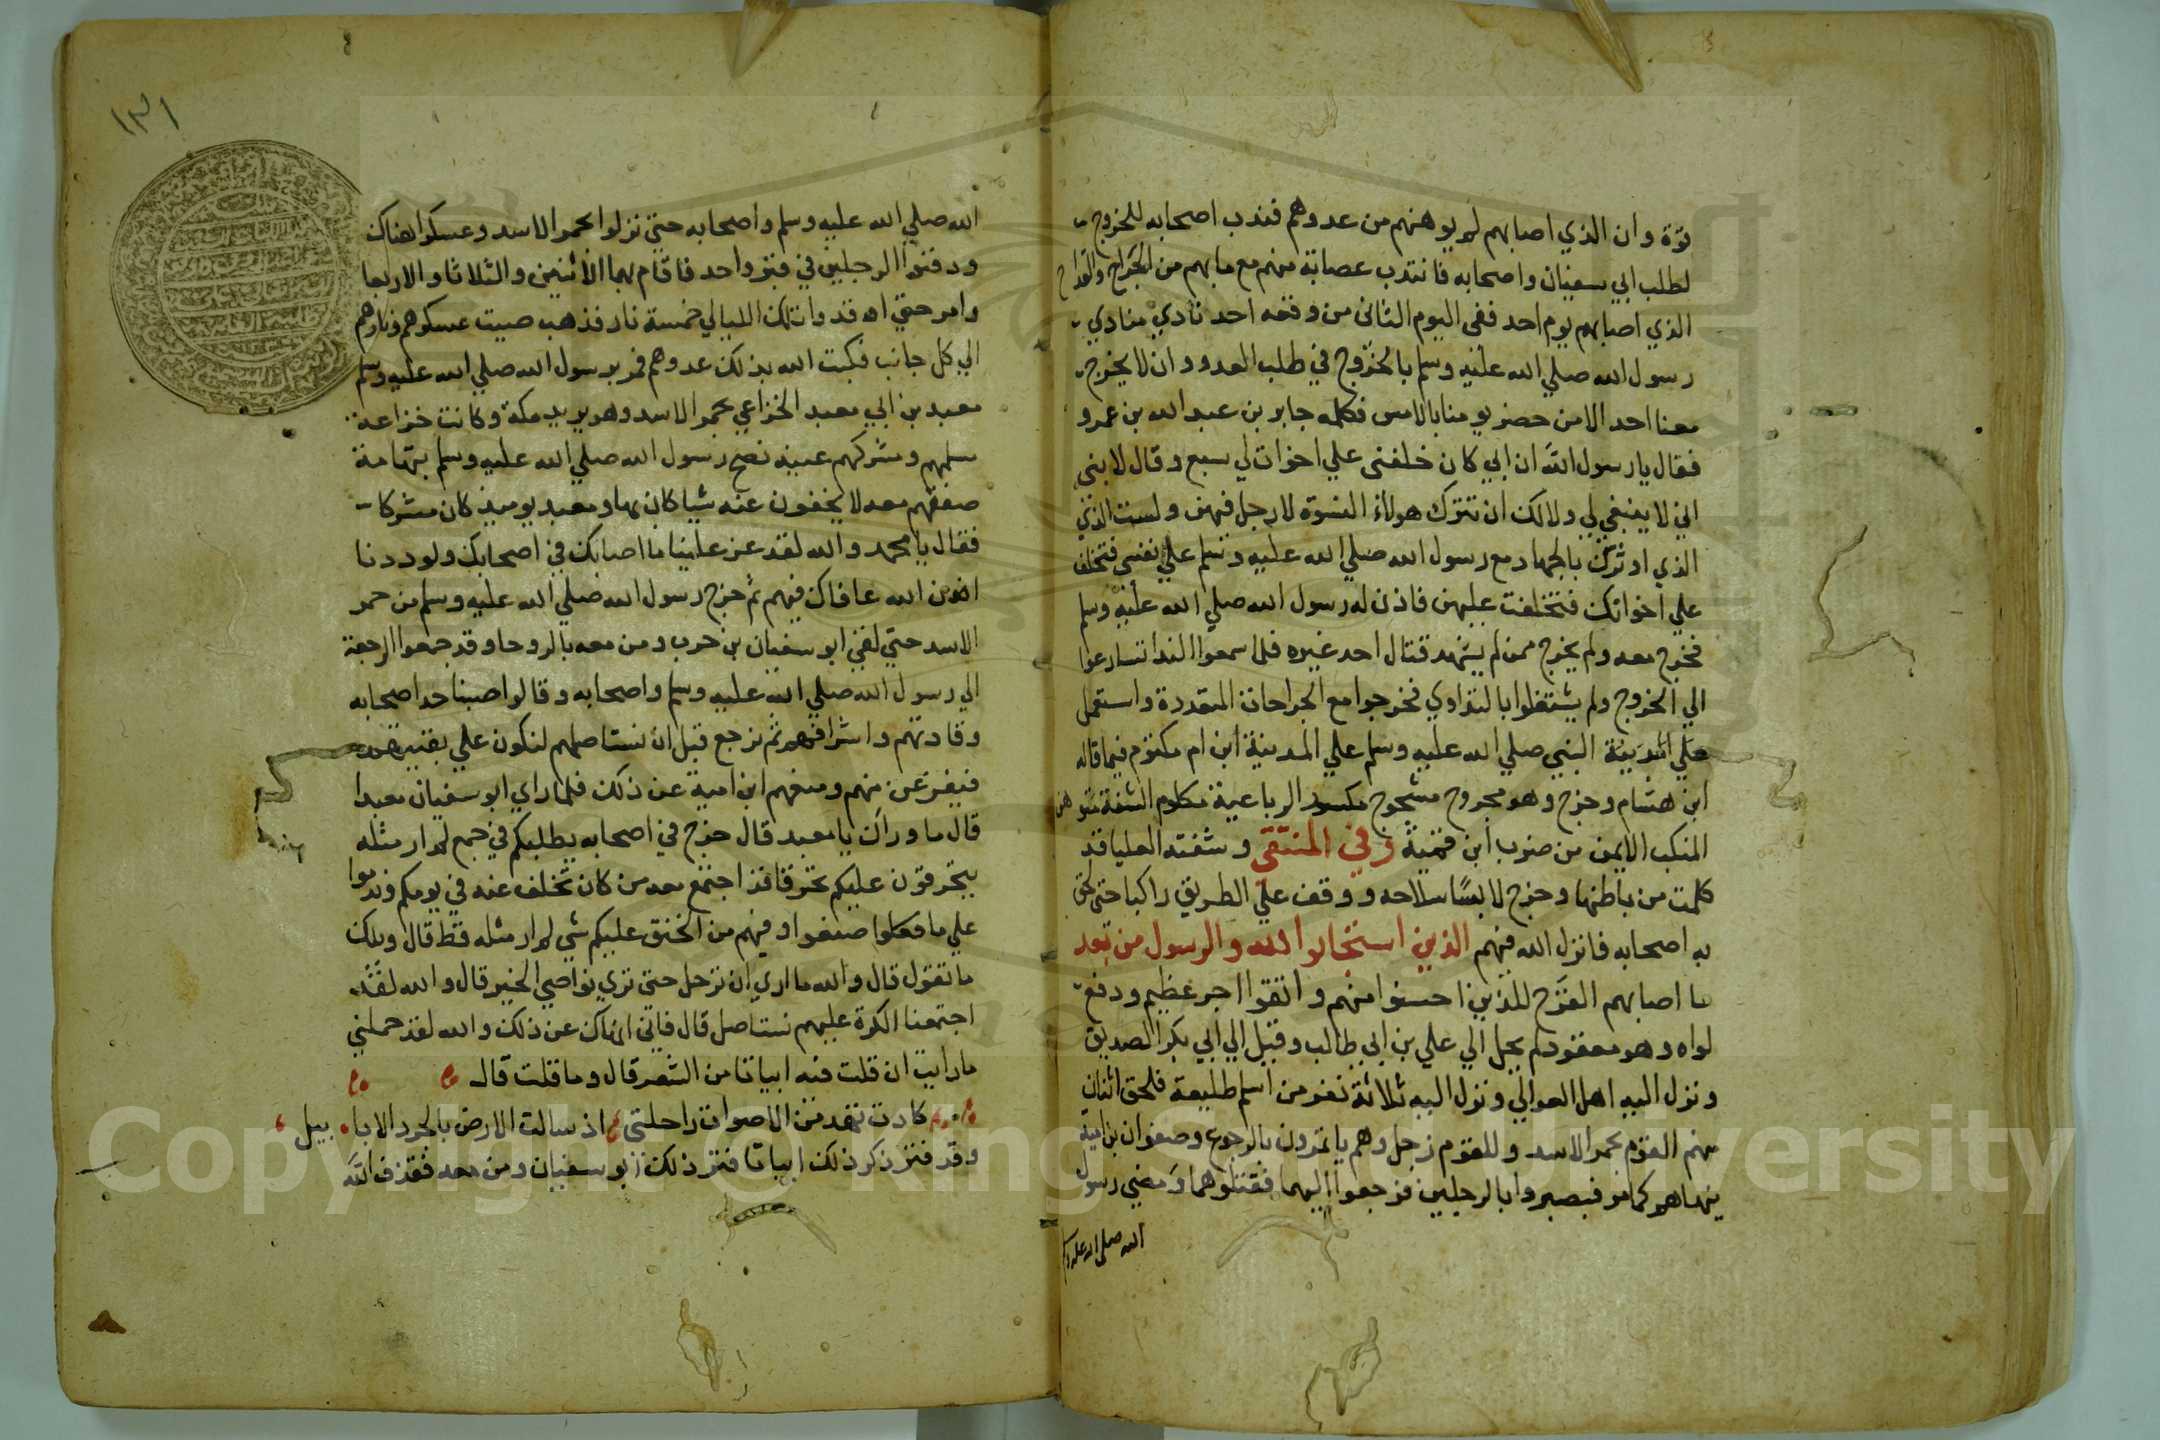 قوة وان الذي اصابهم لم يوهنهم من عدوهم فندب اصحابه للخروج
لطلب ابي سفيان واصحابه فانتدب عصابة منهم مع ما بهم من الجراح والقراح
الذي اصابهم يوم احد ففى اليوم الثانى من وقعه احد نادي منادي
رسول الله صلي الله عليه وسلم بالخروج في طلب العدو وان لا يخرج
معنا احد الا من حضر يومنا بالامس فكلمه جابر بن عبد الله بن عمرو
فقال يا رسول الله ان ابي كان خلفنى علي اخوات لي سبع وقال لابنى
اني لا ينبغي لي ولا لك ان نترك هولاء النسوة لا رجل فيهن ولست الذي
الذي اوثرك بالجهاد مع رسول الله صلي الله عليه وسلم علي نفسي فتخلف
علي اخواتك فتخلفت عليهن فاذن له رسول الله صلي الله عليه وسلم
فخرج معه ولم يخرج ممن لم يشهد قتال احد غيره فلما سمعوا الندا تسارعوا
الي الخروج ولم يشتغلوا بالتداوي فخرجوا مع الجراحات المتعددة واستعمل
علي المدينة النبي صلي الله عليه وسلم علي المدينة ابن ام مكتوم فيما قاله
ابن هشام وخرج وهو مجروح مشجوج مكسور الرباعية مكلوم الشفة متوهن
المنكب الايمن من ضرب ابن قمئة وفي المنتقى وشفته العليا قد
كلمت من باطنها وخرج لابسًا سلاحه ووقف علي الطريق راكبا حتى لحق
به اصحابه فانزل الله فيهم الذين استجابوا لله والرسول من بعد
ما اصابهم القرح للذين احسنوا منهم واتقوا اجر عظيم ودفع
لواه وهو معقود لم يحل الي علي بن ابي طالب وقيل الي ابي بكر الصديق
ونزل اليه اهل العوالي ونزل اليه ثلاثة نفر من اسلم طليعة فلحق اثنان
منهم القوم بحمر الاسد وللقوم زجل وهم ياتمرون بالرجوع وصفوان بن امية
ينهاهم كما مر فبصروا بالرجلين فرجعوا اليهما فقتلوهما ومضي رسول
الله صلى الله عليه وسلم
١٣١
الله صلي الله عليه وسلم واصحابه حتى نزلوا بحمر الاسد وعسكوا هناك
ودفنوا الرجلين في قبر واحد فاقام بها الاثنين والثلاثا والاربعا
وامر حتي اوقدوا تلك الليالي خمسة نار فذهب صيت عسكرهم ونارهم
الي كل جانب فكبت الله بذلك عدوهم فمر برسول الله صلي الله عليه وسلم
معبد بن ابي معبد الخزاعي بحمر الاسد وهو يريد مكة وكانت خزاعة
مسلمهم ومشركهم عيبة نصح رسول الله صلي الله عليه وسلم بتهامة
صفقتهم معه لا يخفون عنه شيا كان بها ومعبد يوميذ كان مشركا
فقال يا محمد والله لقد عز علينا ما اصابك في اصحابك ولوددنا
ان الله عافاك فيهم ثم خرج رسول الله صلي الله عليه وسلم من حمر
الاسد حتي لقي ابو سفيان بن حرب ومن معه بالروحا وقد جمعوا الرجعة
الي رسول الله صلي الله عليه وسلم واصحابه وقالوا اصبنا حد اصحابه
وقادتهم واشرافهم ثم نرجع قبل ان نستاصلهم لنكون علي بقيتهم
فنفرغن منهم ومنعهم ابن امية عن ذلك فلما راي ابو سفيان معبدا
قال ما وراك يا معبد قال خرج في اصحابه يطلبكم في جمع لم ار مثله
يتحرقون عليكم تحرقا قد اجتمع معه من كان تخلف عنه في يومكم وندموا
علي ما فعلوا صنعوا وفيهم من الحنق عليكم شي لم ار مثله قط قال ويلك
ما تقول قال والله ما اري ان ترحل حتى تري نواصي الخير قال والله لقد
اجتمعنا الكرة عليهم نستاصل قال فاني انهاك عن ذلك والله لقد حملني
ما رايت ان قلت فيه ابياتا من الشعر قال وما قلت قال
كادت تهد من الاصوات راحلتى اذ سالت الارض بالجرد الابابيل
وقد فتر ذكر ذلك ابياتا فتر ذلك ابو سفيان ومن معه فقذف الله